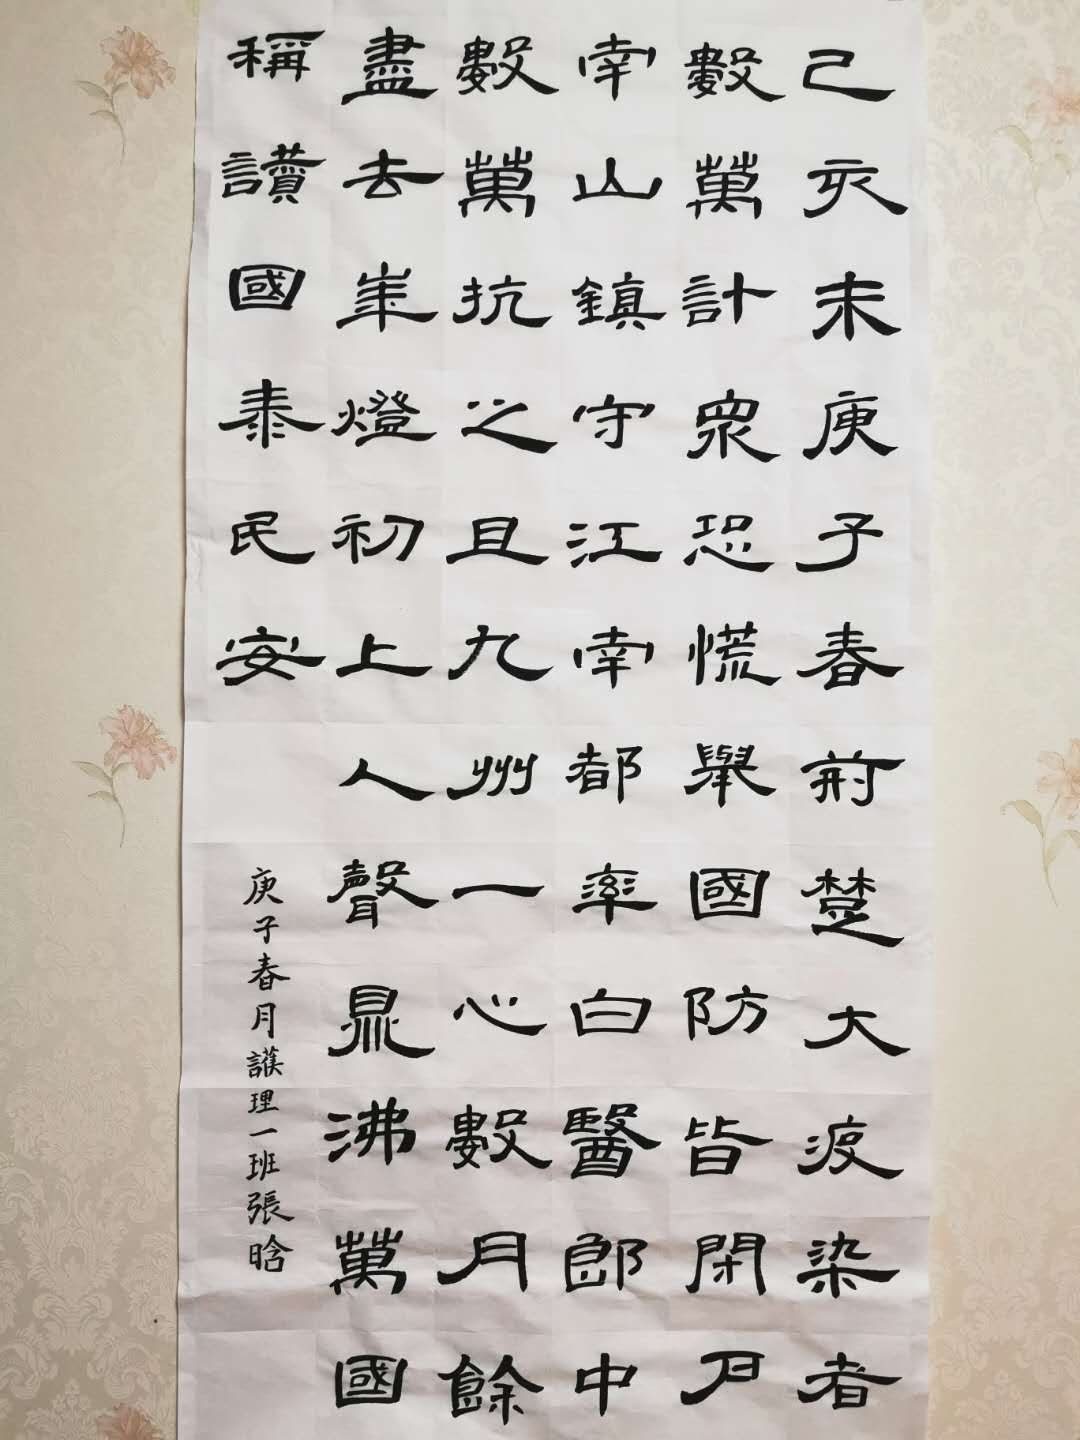 己亥末庚子春荊楚大疫染者
數萬計眾恐慌舉國防皆閉戶
南山鎮守江南都率白醫郎中
數萬抗之且九州一心數月餘
盡去華燈初上人聲鼎沸萬國
稱讚國泰民安
庚子春月護理一班張晗